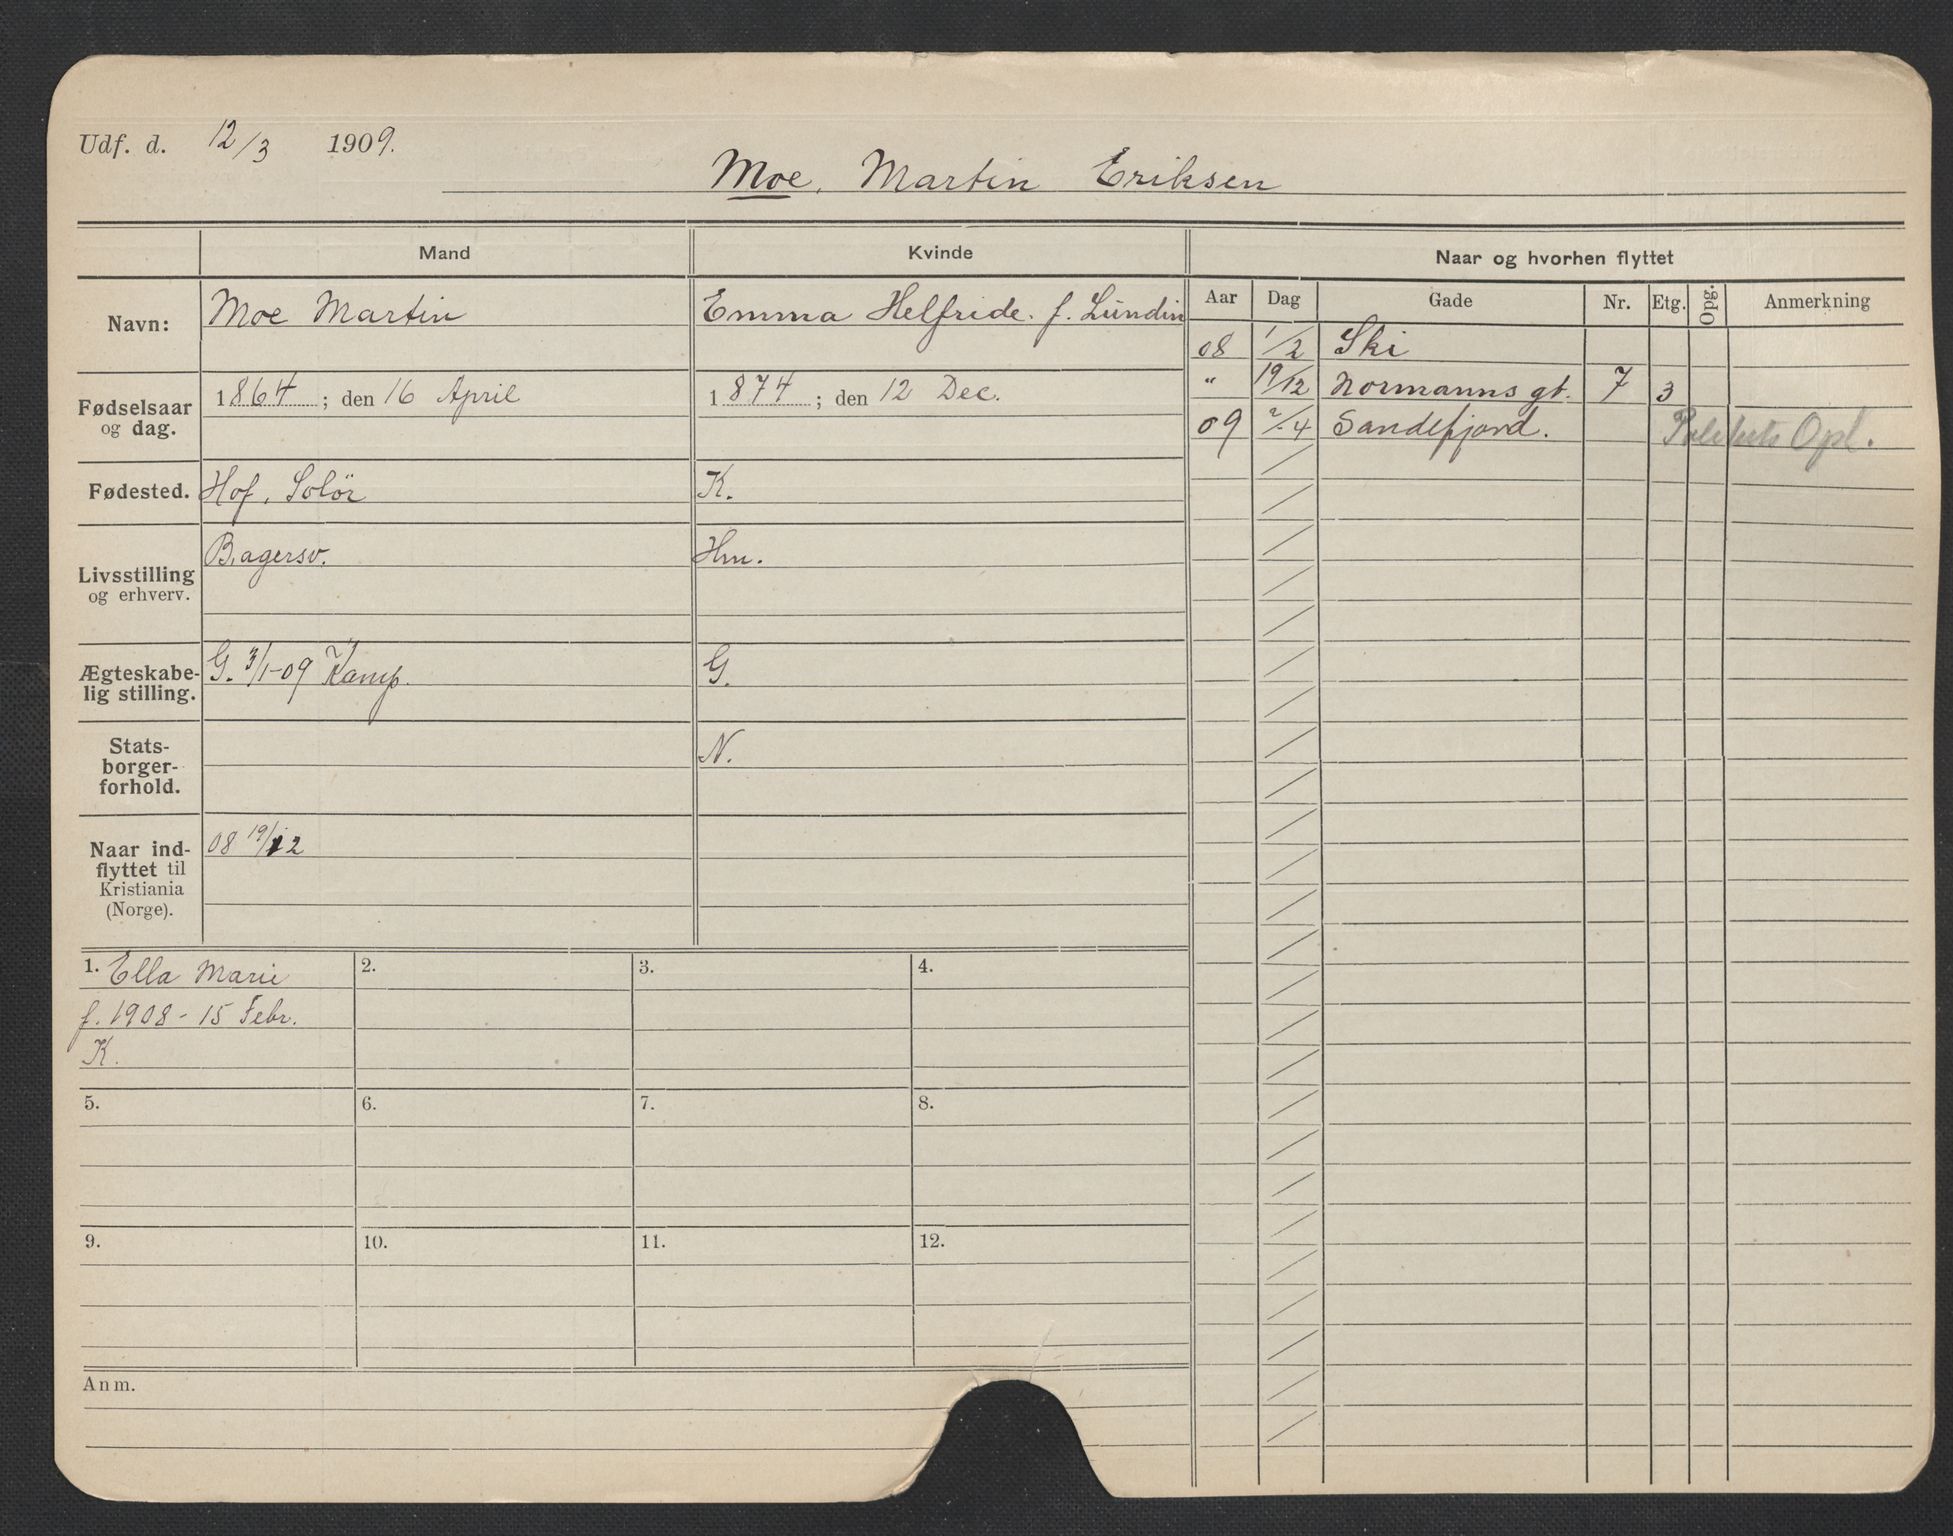 Udf. d. 12/3 1909.
Moe, Martin Eriksen
Mand Kvinde Naar og hvorhen flyttet
Navn: Moe Martin Emma Helfride. f. Lundin
Aar Dag Gade Nr. Etg. Opg. Anmerkning
08 1/2 Ski
" 19/12 Normanns gt. 7 3
09 2/4 Sandefjord. Politiets Opl.
Fødselsaar og dag. 1864; den 16 April 1874; den 12 Dec.
Fødested. Hof, Solør K.
Livsstilling og erhverv. Bagersv. Hm.
Ægteskabe-
lig stilling. G. 3/1-09 Kamp. G.
Stats-
borger-
forhold. N.
Naar ind-
flyttet til
Kristiania
(Norge). 08 19/12
1. Ella Marie 2. 3. 4.
f. 1908 - 15 Febr.
K.
5. 6. 7. 8.
9. 10. 11. 12.
Anm.